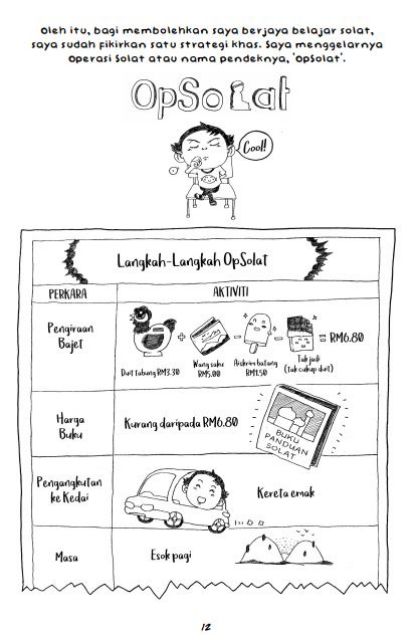 Oleh itu, bagi membolehkan saya berjaya belajar solat,
saya sudah fikirkan satu strategi khas. Saya menggelarnya
Operasi Solat atau nama pendeknya, 'OpSolat'.
OpSolat
Cool!
Langkah-Langkah OpSolat
PERKARA AKTIVITI
Pengiraan
Bajet
+ - - = RM6.80
Duit tabung RM3.30
Wang saku
RM5.00
Aiskrim batang
RM1.50
Tak jadi
(tak cukup duit)
Harga
Buku
Kurang daripada RM6.80
BUKU
PANDUAN
SOLAT
Pengangkutan
ke Kedai
Kereta emak
Masa
Esok pagi
12